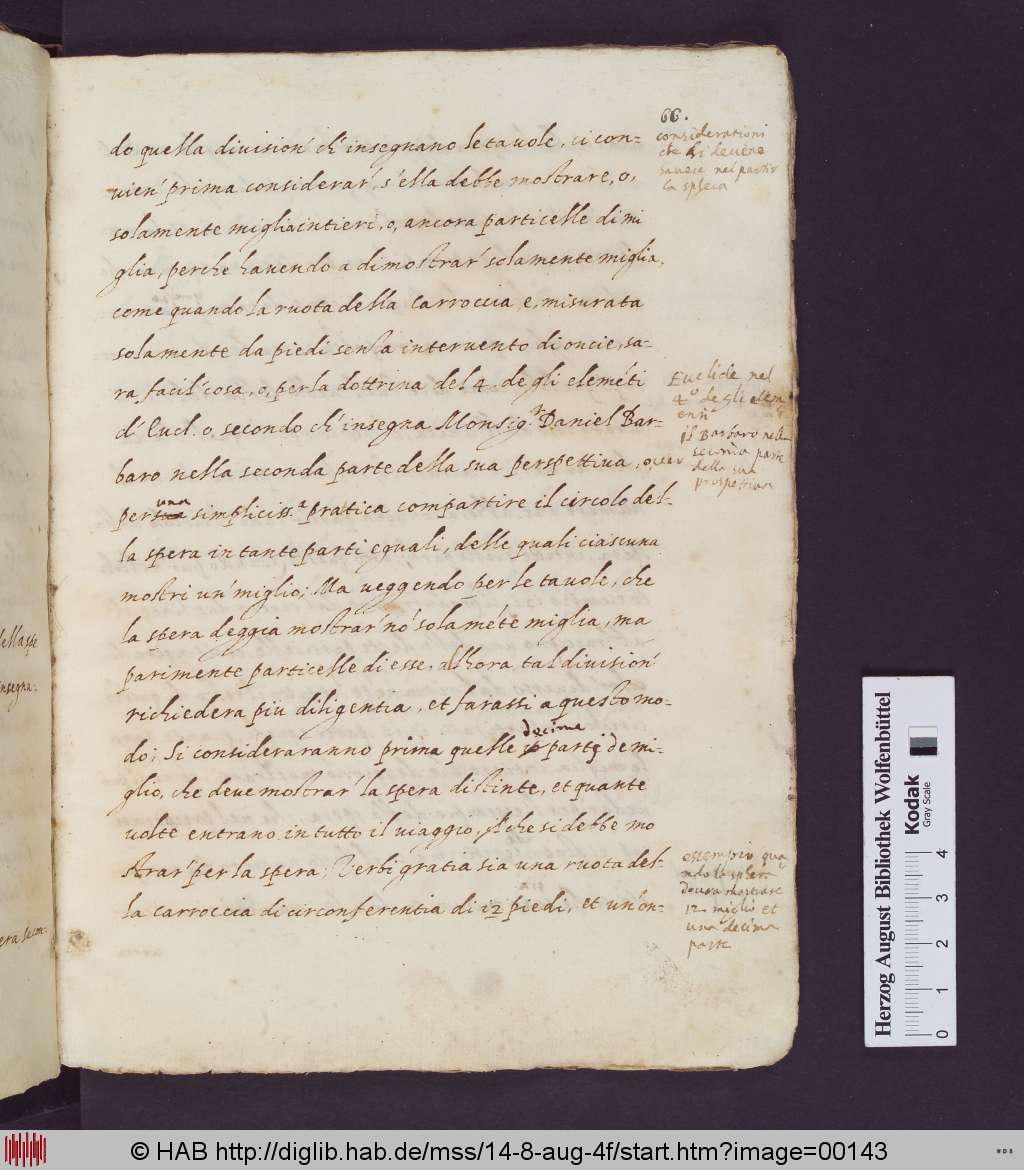 66.
do quella division' ch' insegnano le tavole, ci con-
vien' prima considerar', s'ella debbe mostrare, o,
solamente miglia intieri, o, ancora particelle di mi
glia, perche havendo a dimostrar' solamente miglia,
come quando la ruota della Carroccia e, misurata
solamente da piedi senza intervento di oncie, sa-
ra facil' cosa, o, per la dottrina del 4. de gli eleméti
d' Eucl. o, secondo ch' insegna Monsig.r Daniel Bar-
baro nella seconda parte della sua perspettiva, over
per una simpliciss.a pratica compartire il circolo del-
la spera in tante parti eguali, delle quali ciascuna
mostri un' miglio; Ma veggendo per le tavole, che
la spera deggia mostrar' nó solaméte miglia, ma
parimente particelle di esse, allhora tal division'
richiedera piu diligentia, et farassi a questo mo-
do; Si consideraranno prima quelle decime parti de mi-
glio, che deve mostrar' la spera distinte, et quante
volte entrano in tutto il viaggio, Il che si debbe mo
strar' per la spera; Verbi gratia sia una ruota del-
la carroccia di circonferentia di 12 piedi, et un' on-
considerationi
che si devene
havere nel partir
la sphera
Euclide nel
4.o de gli elem
enti
il Barbaro nella
seconda parte
della sua
prospettiva
essempio qua
ndo la sphera
dovea mostrare
12 miglio et
una decima
parte
della spe
insegna:
era secon-
Herzog August Bibliothek Wolfenbüttel
Kodak
Gray Scale
0 1 2 3 4
© HAB http://diglib.hab.de/mss/14-8-aug-4f/start.htm?image=00143